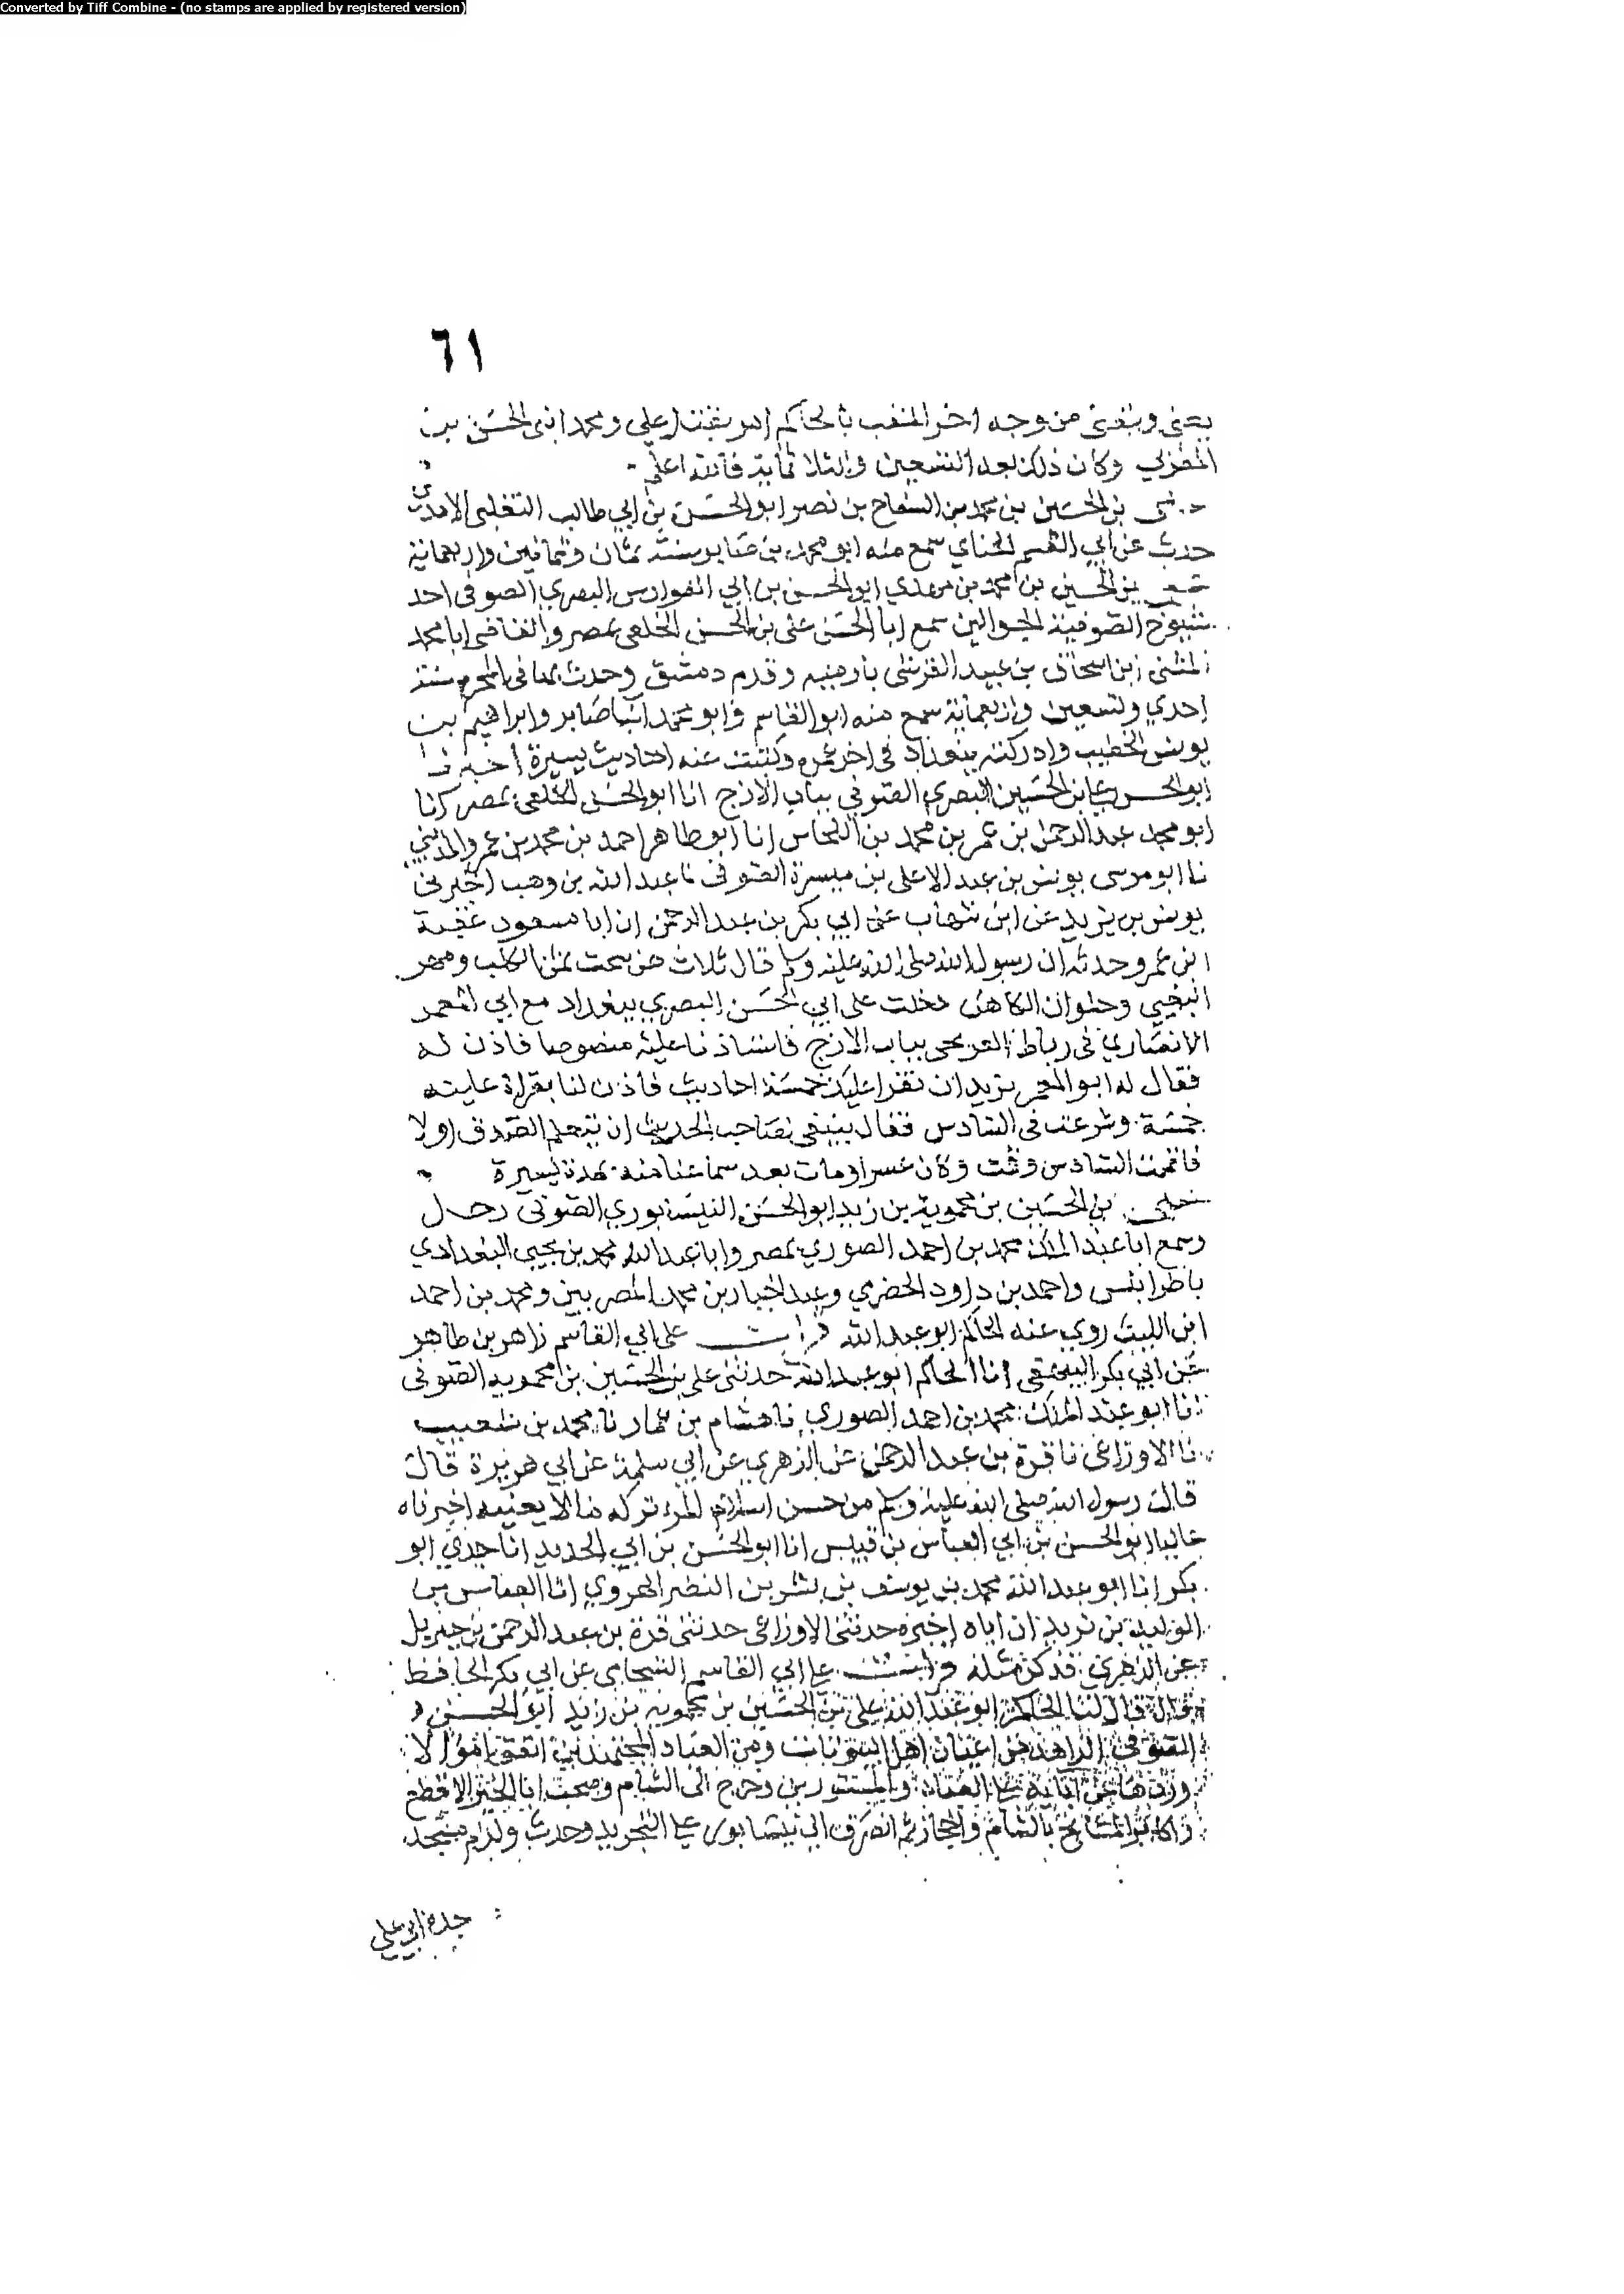 Converted by Tiff Combine - (no stamps are applied by registered version)
٦١
يحيى وبلغني من وجه اخر الملقب بالحاكم امر بقتل علي ومحمد ابني الحسين بن
المغربي وكان ذلك بعد التسعين والثلاثماية فالله اعلم
علي بن الحسين بن محمد بن السفاح بن نصر ابو الحسن بن ابي طالب التغلبي الامدي
حدث عن ابي القسم الحناي سمع منه ابو محمد بن صابر سنة ثمان وثمانين واربعماية
علي بن الحسين بن محمد بن مهدي ابو الحسن بن ابي الفوارس البصري الصوفي احد
شيوخ الصوفية الجوالين سمع ابا الحسن علي بن الحسن الخلعي بمصر والقاضي ابا محمد
المثنى بن اسحاق بن عبيد القرشي بارمنيه وقدم دمشق وحدث بها في المحرم سنة
احدي وتسعين واربعماية سمع منه ابو القاسم وابو محمد ابنا صابر وابراهيم بن
يونس الخطيب وادركته ببغداد في اخر عمره وكتبت عنه احاديث يسيرة اخبرنا
ابو الحسن علي بن الحسين البصري الصوفي بباب الازج انا ابو الحسن الخلعي بمصر انا
ابو محمد عبد الرحمن بن عمر بن محمد بن النحاس انا ابو طاهر احمد بن محمد بن عمرو المديني
نا ابو موسى يونس بن عبد الاعلى بن ميسرة الصوفي نا عبد الله بن وهب اخبرني
يونس بن يزيد عن ابن شهاب عن ابي بكر بن عبد الرحمن ان ابا مسعود عقبة
ابن عمرو حدثه ان رسول الله صلى الله عليه وسلم قال ثلاث هن سحت ثمن الكلب ومهر
البغي وحلوان الكاهن دخلت على ابي الحسن البصري ببغداد مع ابي المعمر
الانصاري في رباط بباب الازج فاستاذنا عليه فاذن له
فقال له ابو المعمر نريد ان نقرا عليك خمسة احاديث فاذن لنا بقراة عليه
خمسة وشرعت في السادس فقال ينبغي لصاحب الحديث ان يتعلم الصدق اولا
فاتممت السادس وقمت وكان عسرا ومات بعد سماعنا منه بمدة يسيرة
علي بن الحسين بن محمويه بن زيد ابو الحسن النيسابوري الصوفي رحال
وسمع ابا عبد الملك محمد بن احمد الصوري بمصر وابا عبد الله محمد بن يحيى البغدادي
باطرابلس واحمد بن داود الحضري وعبد الجبار بن محمد المصريين ومحمد بن احمد
ابن الليث روي عنه الحاكم ابو عبد الله قرات على ابي القاسم زاهر بن طاهر
عن ابي بكر البيهقي انا الحاكم ابو عبد الله حدثني علي بن الحسين بن محمويه الصوفي
انا ابو عبد الملك محمد بن احمد الصوري نا هشام بن عمار نا محمد بن شعيب
نا الاوزاعي نا قرة بن عبد الرحمن عن الزهري عن ابي سلمة عن ابي هريرة قال
قال رسول الله صلى الله عليه وسلم من حسن اسلام المرء تركه ما لا يعنيه اخبرناه
عاليا ابو الحسن بن ابي العباس بن قبيس انا ابو الحسن بن ابي الحديد انا جدي ابو
بكر انا ابو عبد الله محمد بن يوسف بن بشر بن النضر الهروي انا العباس بن
الوليد بن مزيد ان اباه اخبره حدثني الاوزاعي حدثني قرة بن عبد الرحمن بن جبريل
عن الزهري فذكر مثله قرات على ابي القاسم الشحامي عن ابي بكر الحافظ
قال قال لنا الحاكم ابو عبد الله علي بن الحسين بن محمويه بن زيد ابو الحسن
الصوفي الزاهد من اعيان اهل البيوتات ومن العباد المجتهدين انفق اموالا
ورثها عن ابايه على العباد والمستورين وخرج الى الشام وصحب ابا الخير الاقطع
واكابر المشايخ بالشام والحجاز ثم انصرف الى نيسابور على التجريد وحدث ولزم مسجد
جده ابي علي